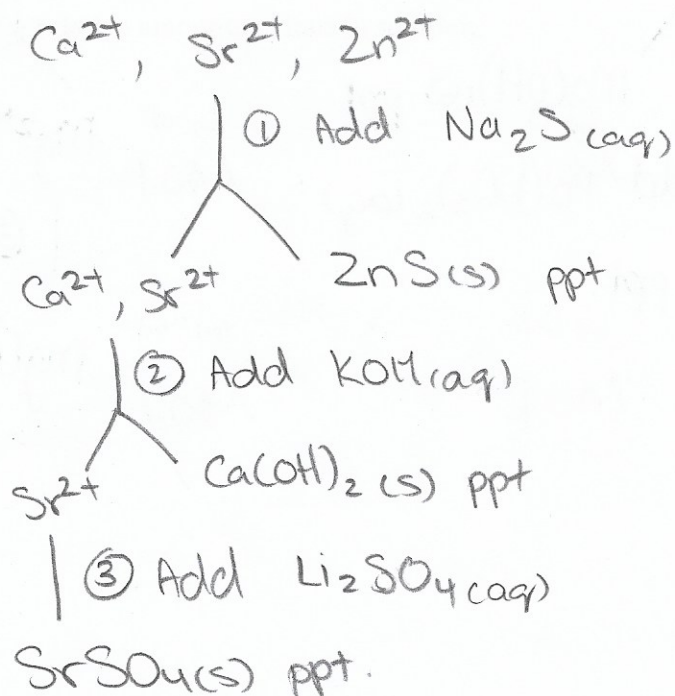 Ca²⁺, Sr²⁺, Zn²⁺
① Add Na₂S(aq)
Ca²⁺, Sr²⁺ ZnS(s) ppt
② Add KOH(aq)
Sr²⁺ Ca(OH)₂(s) ppt
③ Add Li₂SO₄(aq)
SrSO₄(s) ppt.